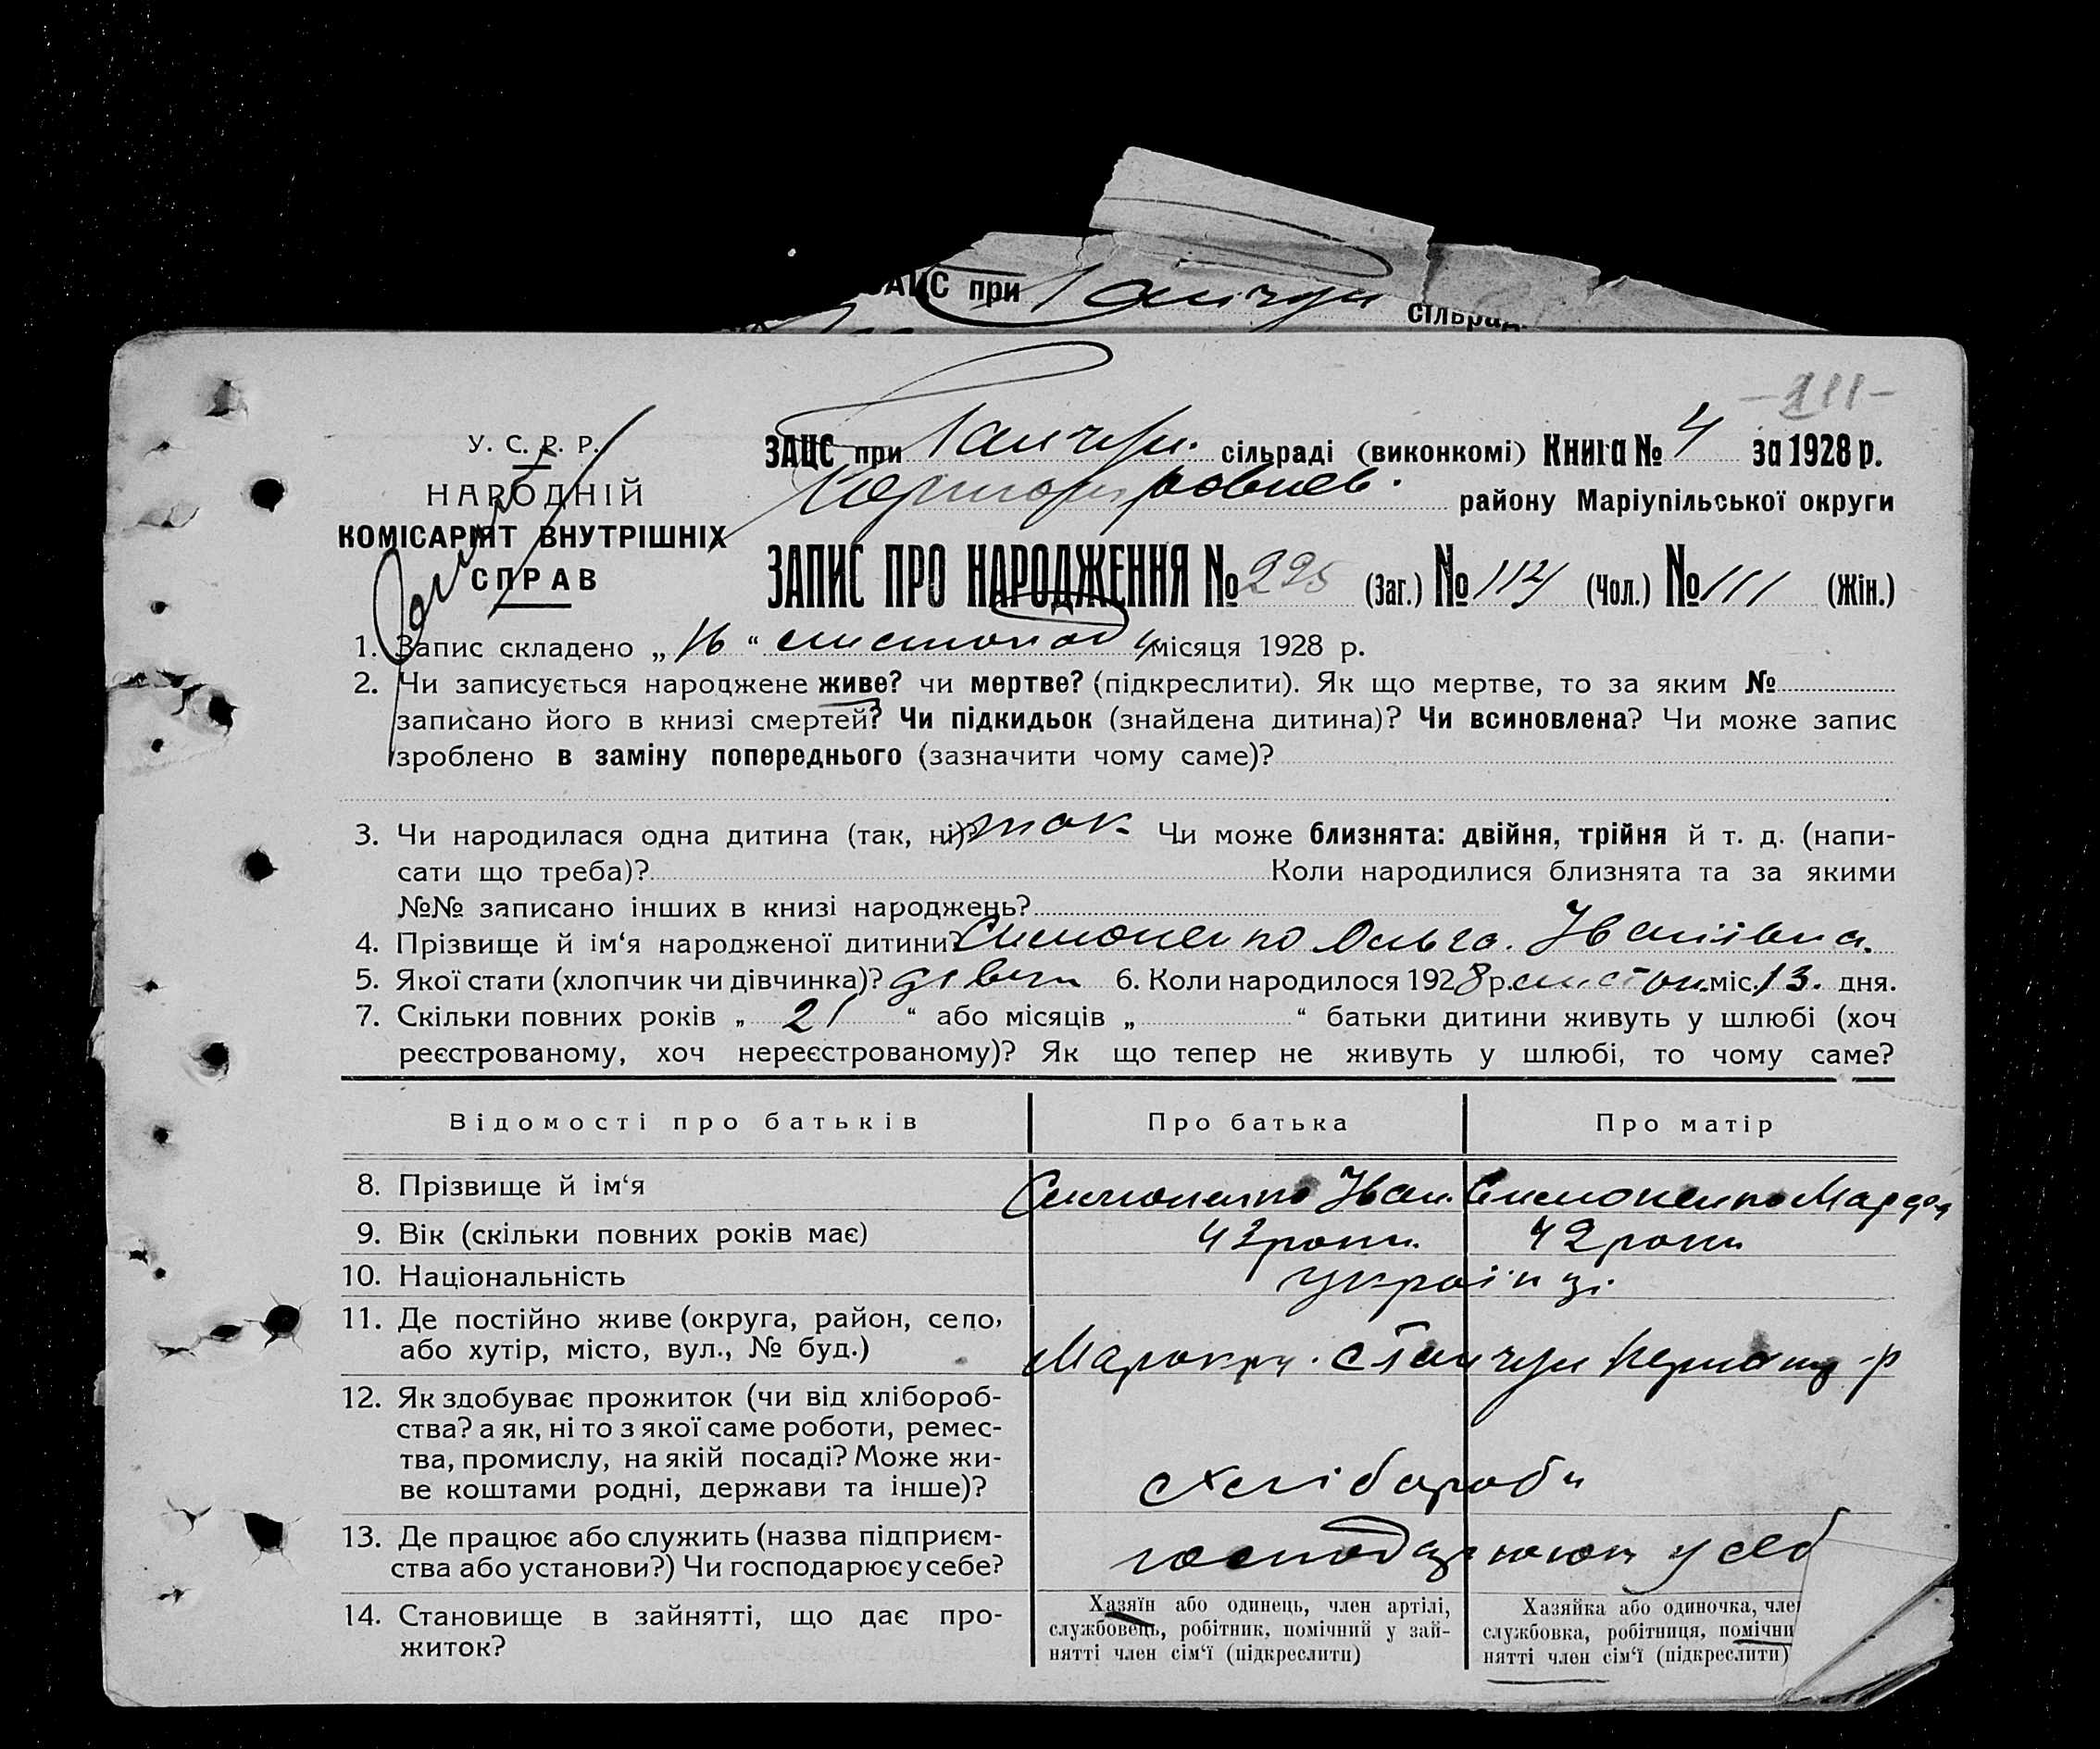 ЗАЦС при Ганчул сільрад.
-111-
У. С. Р. Р.
НАРОДНІЙ
КОМІСАРІЯТ ВНУТРІШНІХ
СПРАВ
ЗАЦС при сільраді (виконкомі) Книга № 4 за 1928 р.
району Маріупільської округи
ЗАПИС ПРО НАРОДЖЕННЯ № 225 (Заг.) № 114 (Чол.) № 111 (Жін.)
1. Запис складено „ 16 “ листопад місяця 1928 р.
2. Чи записується народжене живе? чи мертве? (підкреслити). Як що мертве, то за яким №
записано його в книзі смертей? Чи підкидьок (знайдена дитина)? Чи всиновлена? Чи може запис
зроблено в заміну попереднього (зазначити чому саме)?
3. Чи народилася одна дитина (так, ні)? так Чи може близнята: двійня, трійня й т. д. (напи-
сати що треба)? Коли народилися близнята та за якими
№№ записано інших в книзі народжень?
4. Прізвище й ім‘я народженої дитини? Симоненко Ольга Іванівна.
5. Якої стати (хлопчик чи дівчинка)? дівчин 6. Коли народилося 1928 р. листоп. міс. 13. дня.
7. Скільки повних років „ 21 “ або місяців „ “ батьки дитини живуть у шлюбі (хоч
реєстрованому, хоч нереєстрованому)? Як що тепер не живуть у шлюбі, то чому саме?
Відомості про батьків Про батька Про матір
8. Прізвище й ім‘я Симоненко Іван Симоненко
9. Вік (скільки повних років має) 43 роки 42 роки
10. Національність українці
11. Де постійно живе (округа, район, село,
або хутір, місто, вул., № буд.)
12. Як здобуває прожиток (чи від хлібороб-
ства? а як, ні то з якої саме роботи, ремес-
тва, промислу, на якій посаді? Може жи-
ве коштами родні, держави та інше)? хлібороби
13. Де працює або служить (назва підприєм-
ства або установи?) Чи господарює у себе? господарюють у себ
14. Становище в зайнятті, що дає про-
житок?
Хазяїн або одинець, член артілі,
службовець, робітник, помічний у зай-
нятті член сім‘ї (підкреслити)
Хазяйка або одиночка, чле
службовка, робітниця, помічни
нятті член сім‘ї (підкреслити)